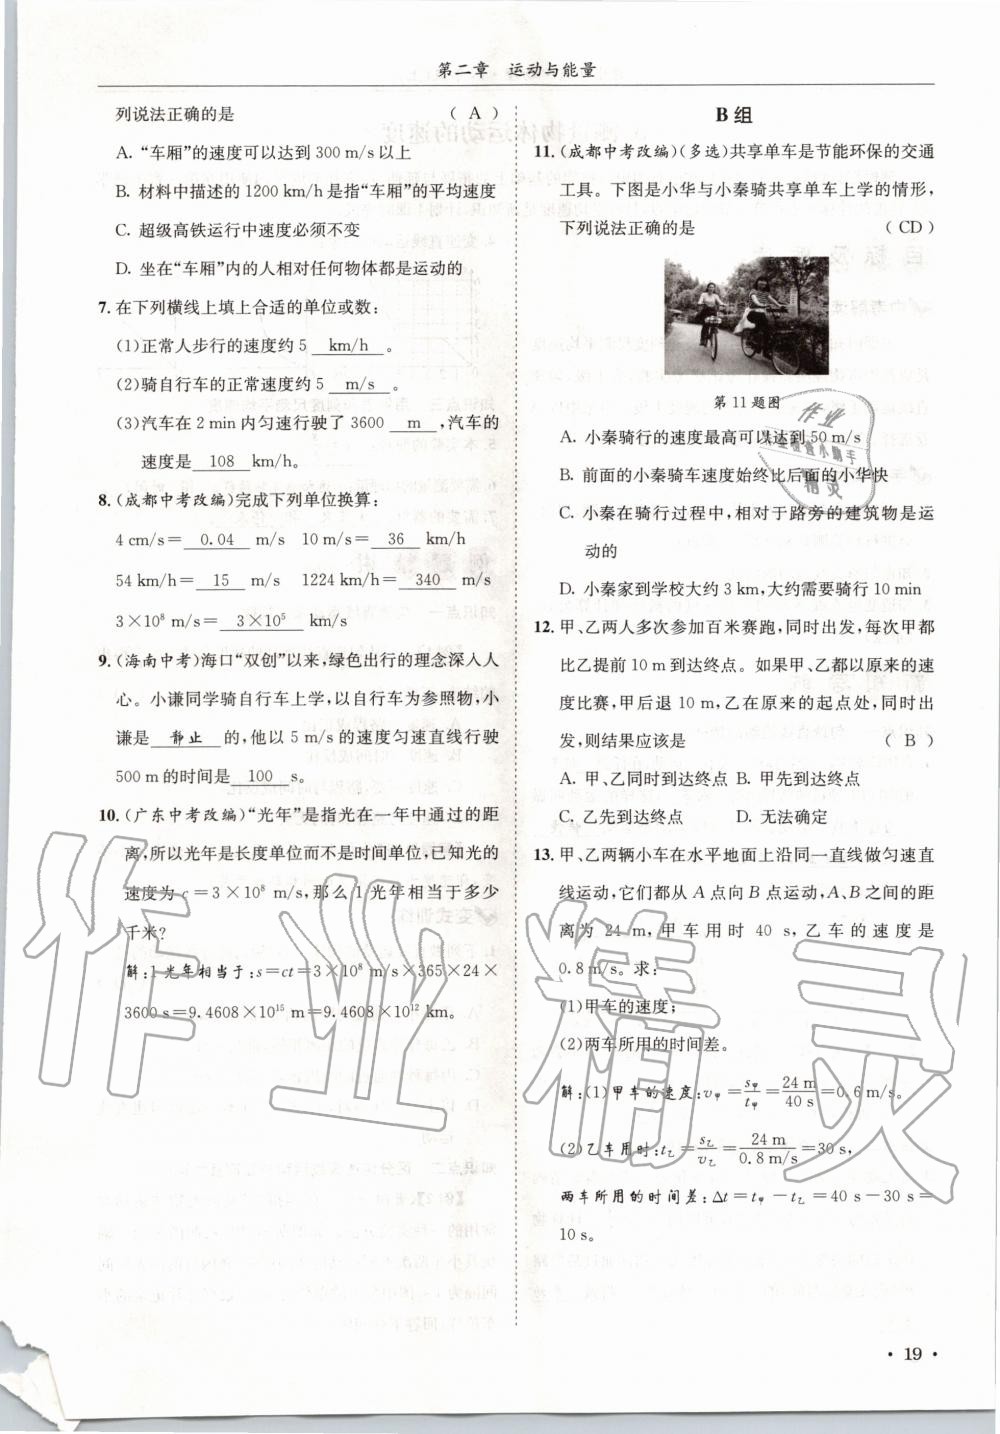 第二章 运动与能量
列说法正确的是 ( A )
A. “车厢”的速度可以达到 300 m/s 以上
B. 材料中描述的 1200 km/h 是指“车厢”的平均速度
C. 超级高铁运行中速度必须不变
D. 坐在“车厢”内的人相对任何物体都是运动的
7. 在下列横线上填上合适的单位或数:
(1)正常人步行的速度约 5 km/h 。
(2)骑自行车的正常速度约 5 m/s 。
(3)汽车在 2 min 内匀速行驶了 3600 m ,汽车的
速度是 108 km/h。
8. (成都中考改编)完成下列单位换算:
4 cm/s= 0.04 m/s 10 m/s= 36 km/h
54 km/h= 15 m/s 1224 km/h= 340 m/s
3×10⁸ m/s= 3×10⁵ km/s
9. (海南中考)海口“双创”以来,绿色出行的理念深入人
心。小谦同学骑自行车上学,以自行车为参照物,小
谦是 静止 的,他以 5 m/s 的速度匀速直线行驶
500 m 的时间是 100 s。
10. (广东中考改编)“光年”是指光在一年中通过的距
离,所以光年是长度单位而不是时间单位,已知光的
速度为 c=3×10⁸ m/s,那么 1 光年相当于多少
千米?
解:1 光年相当于:s=ct=3×10⁸ m/s×365×24×
3600 s=9.4608×10¹⁵ m=9.4608×10¹² km。
B 组
11. (成都中考改编)(多选)共享单车是节能环保的交通
工具。下图是小华与小秦骑共享单车上学的情形,
下列说法正确的是 ( CD )
第 11 题图
A. 小秦骑行的速度最高可以达到 50 m/s
B. 前面的小秦骑车速度始终比后面的小华快
C. 小秦在骑行过程中,相对于路旁的建筑物是运
动的
D. 小秦家到学校大约 3 km,大约需要骑行 10 min
12. 甲、乙两人多次参加百米赛跑,同时出发,每次甲都
比乙提前 10 m 到达终点。如果甲、乙都以原来的速
度比赛,甲后退 10 m,乙在原来的起点处,同时出
发,则结果应该是 ( B )
A. 甲、乙同时到达终点 B. 甲先到达终点
C. 乙先到达终点 D. 无法确定
13. 甲、乙两辆小车在水平地面上沿同一直线做匀速直
线运动,它们都从 A 点向 B 点运动,A、B 之间的距
离为 24 m,甲车用时 40 s,乙车的速度是
0.8 m/s。求:
(1)甲车的速度;
(2)两车所用的时间差。
解:(1)甲车的速度:v甲=s甲/t甲=24 m/40 s=0.6 m/s。
(2)乙车用时:t乙=s乙/v乙=24 m/0.8 m/s=30 s,
两车所用的时间差:Δt=t甲-t乙=40 s-30 s=
10 s。
· 19 ·
作业精灵